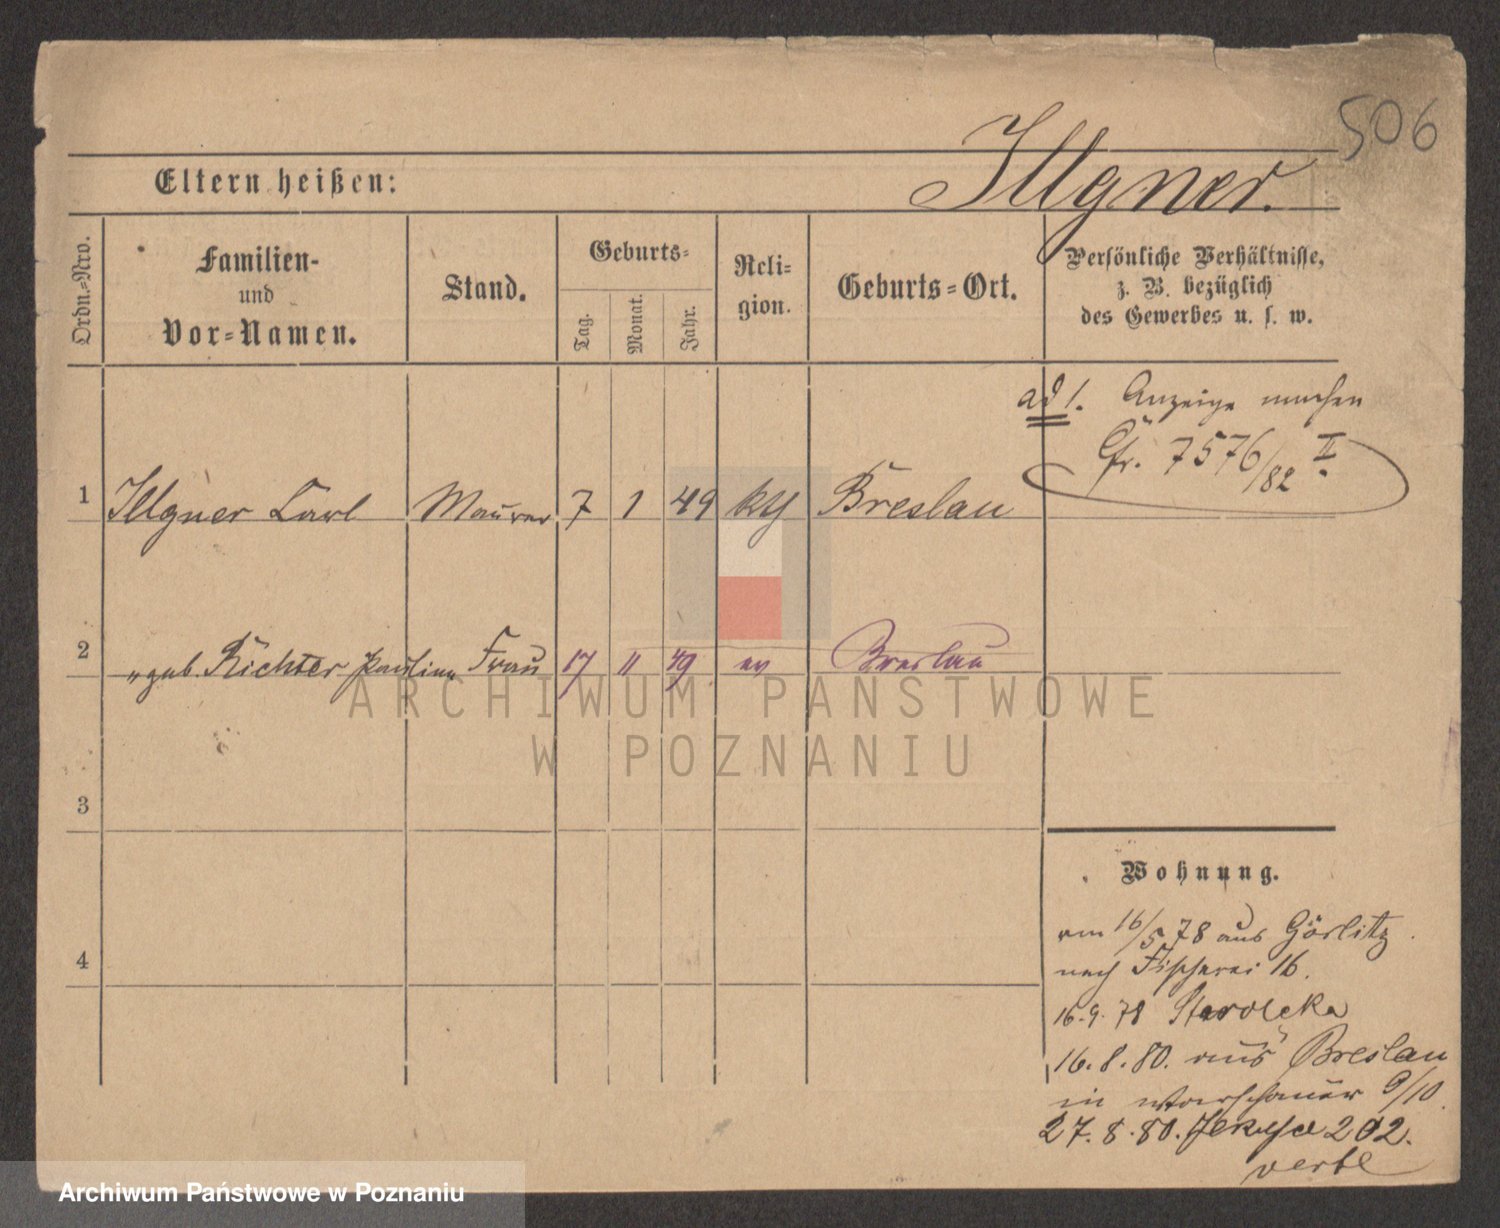 506
Illgner.
Eltern heißen:
Ordn.=Nro.
Familien-
und
Vor=Namen.
Stand.
Geburts=
Tag.
Monat.
Jahr.
Reli=
gion.
Geburts=Ort.
Persönliche Verhältnisse,
z. B. bezüglich
des Gewerbes u. s. w.
ad 1. Anzeige machen
Cfr. 7576/82 II.
1 Illgner Carl Maurer 7 1 49 kth Breslau
2 " geb. Richter Pauline Frau 17 11 49 ev Breslau
3
4
Wohnung.
am 16/5 78 aus Görlitz
nach Fischerei 16.
16.9.78 Starolenka
16.8.80. aus Breslau
in Warschauer 9/10.
27.8.80. 202.
ARCHIWUM PAŃSTWOWE
W POZNANIU
Archiwum Państwowe w Poznaniu